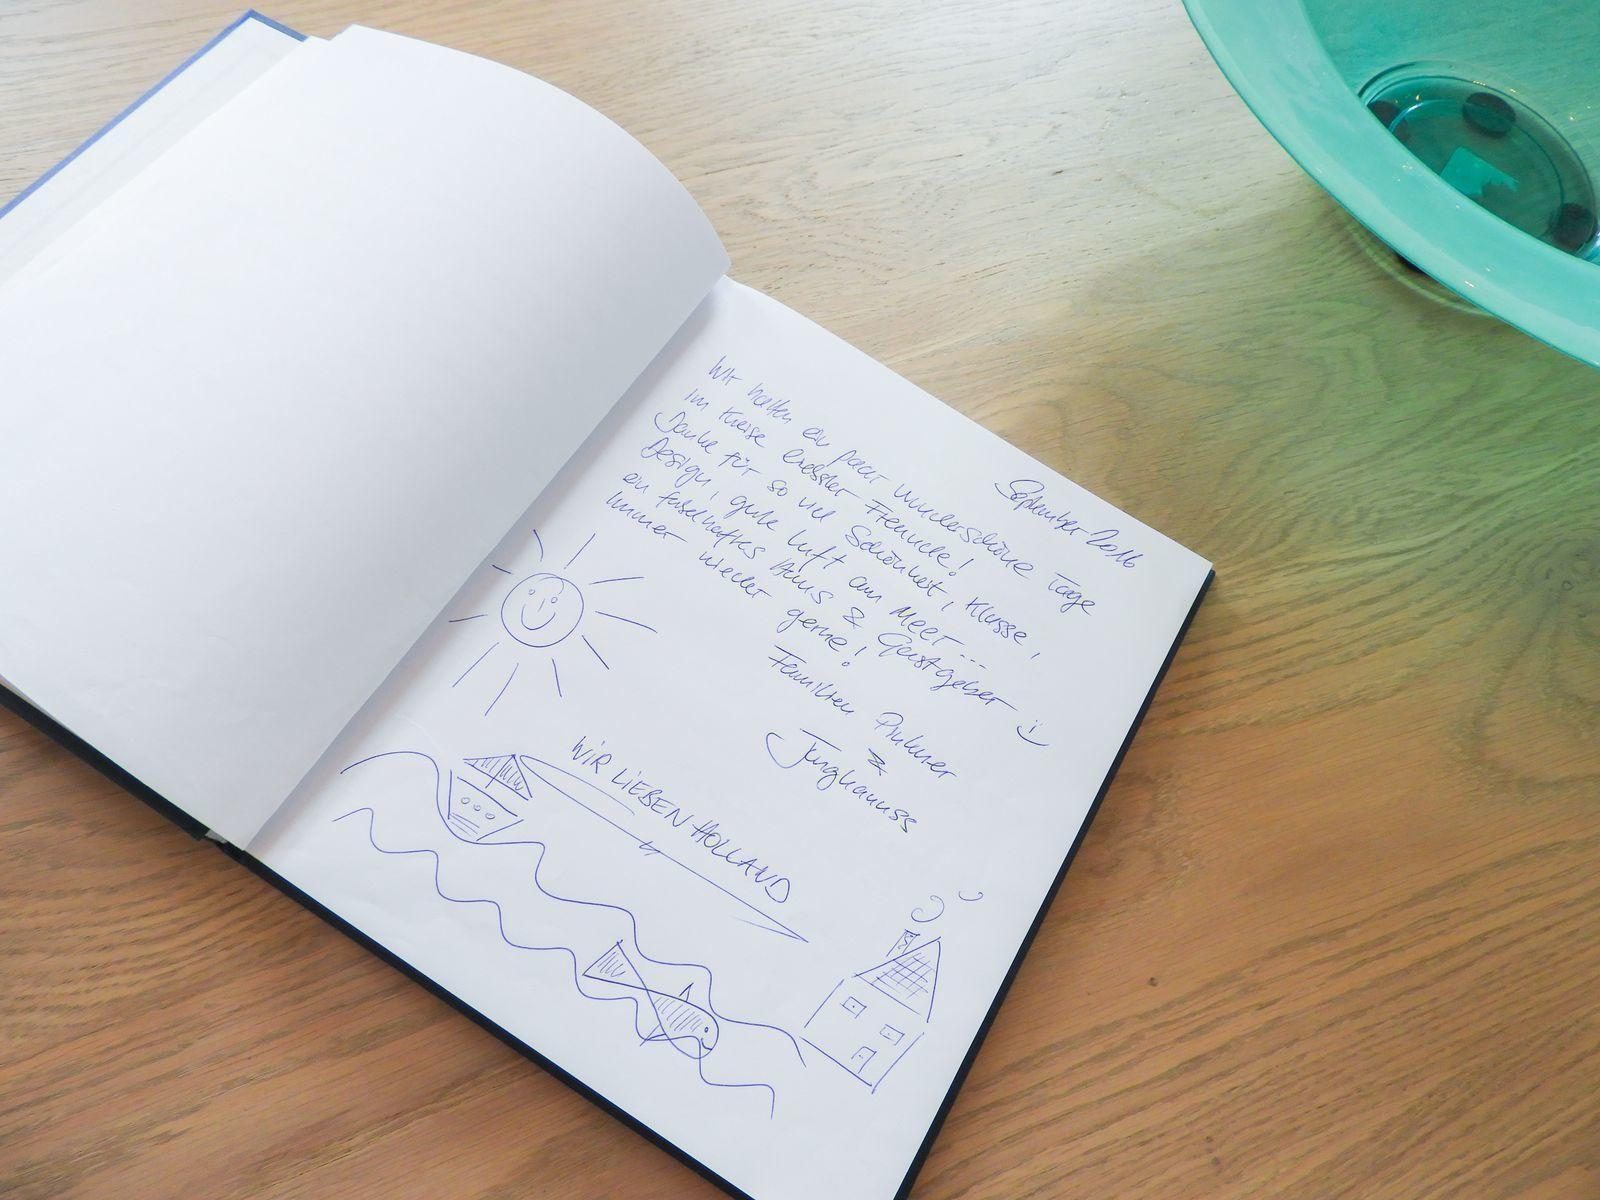 September 2016
Wir hatten ein paar wunderschöne Tage
im Kreise liebster Freunde!
Danke für so viel Schönheit, Klasse,
Design, gute Luft am Meer...
ein fabelhaftes Haus & Gastgeber :)
Immer wieder gerne!
Familien
&
Junghanns
WIR LIEBEN HOLLAND